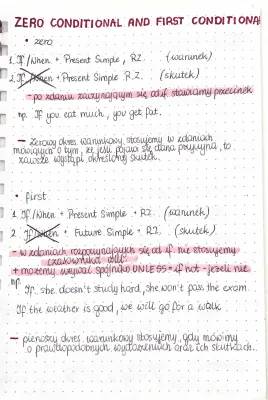 ZERO CONDITIONAL AND FIRST CONDITIONAL
• zero
1. If/When + Present Simple, RZ. (warunek)
2. If/When + Present Simple R.Z. (skutek)
- po zdaniu zaczynającym się od if stawiamy przecinek
np. If you eat much, you get fat.
- Zerowy okres warunkowy stosujemy w zdaniach
mówiących o tym, że jeśli pojawi się dana przyczyna, to
zawsze wystąpi określony skutek.
• first
1. If/When + Present Simple + RZ. (warunek)
2. If/When + Future Simple + RZ. (skutek)
- w zdaniach rozpoczynających się od if nie stosujemy
czasownika will!
+ możemy używać spójnika UNLESS = if not - jeżeli nie
np.
If she doesn't study hard, she won't pass the exam.
If the weather is good, we will go for a walk
- pierwszy okres warunkowy stosujemy, gdy mówimy
o prawdopodobnych wydarzeniach oraz ich skutkach.